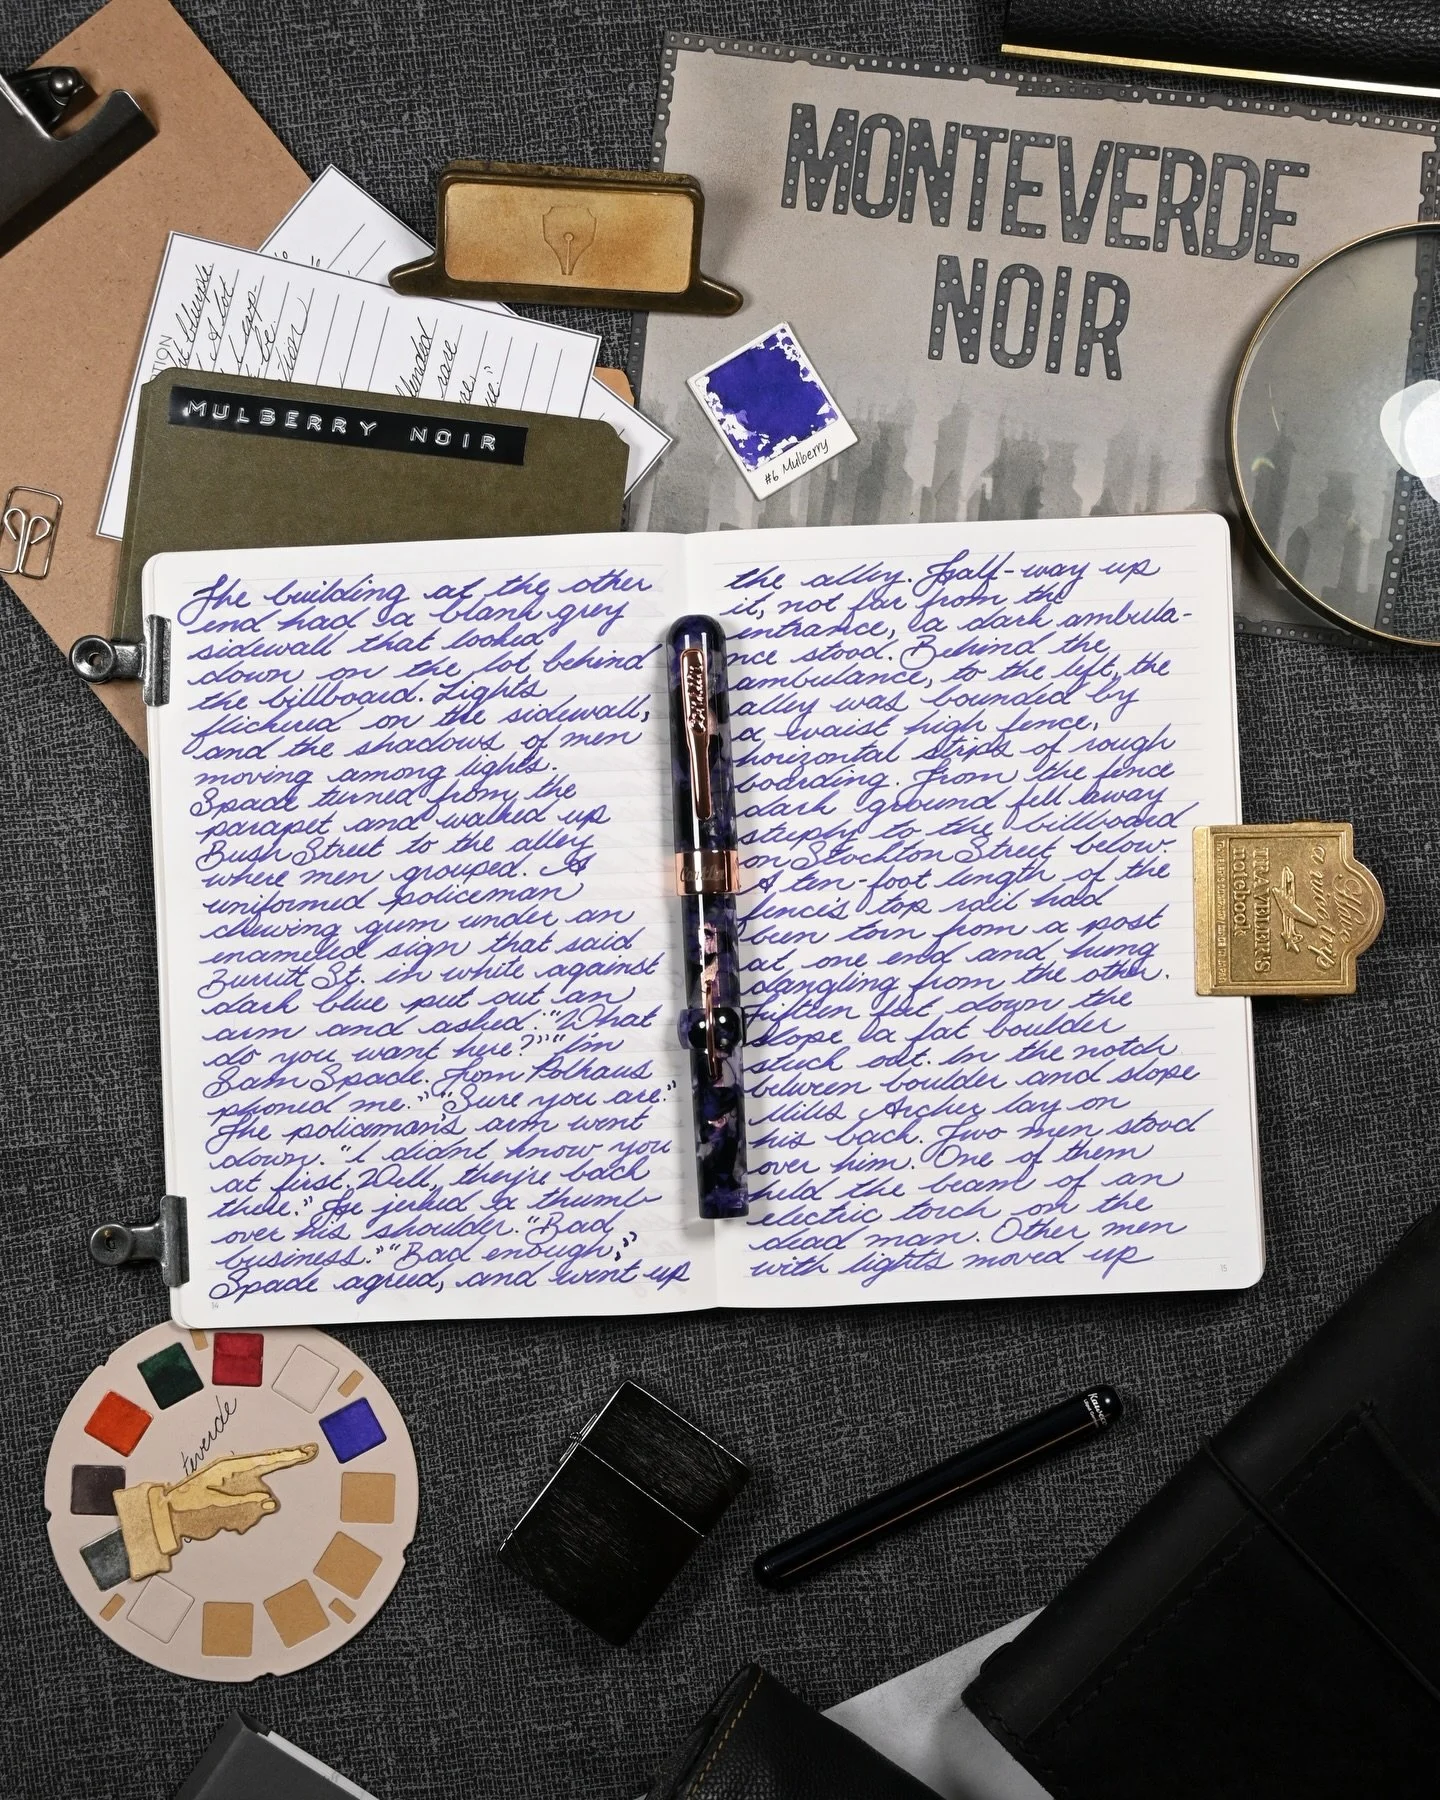 MONTEVERDE
NOIR
MULBERRY NOIR
#6 Mulberry
The building at the other
end had a blank grey
sidewall that looked
down on the lot behind
the billboard. Lights
flickered on the sidewall,
and the shadows of men
moving among lights.
Spade turned from the
parapet and walked up
Bush Street to the alley
where men grouped. A
uniformed policeman
chewing gum under an
enameled sign that said
Burritt St. in white against
dark blue put out an
arm and asked: "What
do you want here?" "I'm
Sam Spade. Tom Polhaus
phoned me." "Sure you are."
The policeman's arm went
down. "I didn't know you
at first. Well, they're back
there." He jerked a thumb
over his shoulder. "Bad
business." "Bad enough,"
Spade agreed, and went up
14
the alley. Half-way up
it, not far from the
entrance, a dark ambula-
nce stood. Behind the
ambulance, to the left, the
alley was bounded by
a waist high fence,
horizontal strips of rough
boarding. From the fence
dark ground fell away
steeply to the billboard
on Stockton Street below.
A ten-foot length of the
fence's top rail had
been torn from a post
at one end and hung
dangling from the other.
Fifteen feet down the
slope a fat boulder
stuck out. In the notch
between boulder and slope
Miles Archer lay on
his back. Two men stood
over him. One of them
held the beam of an
electric torch on the
dead man. Other men
with lights moved up
15
Have
a nice trip
TRAVELER'S
notebook
teverde
Kaweco